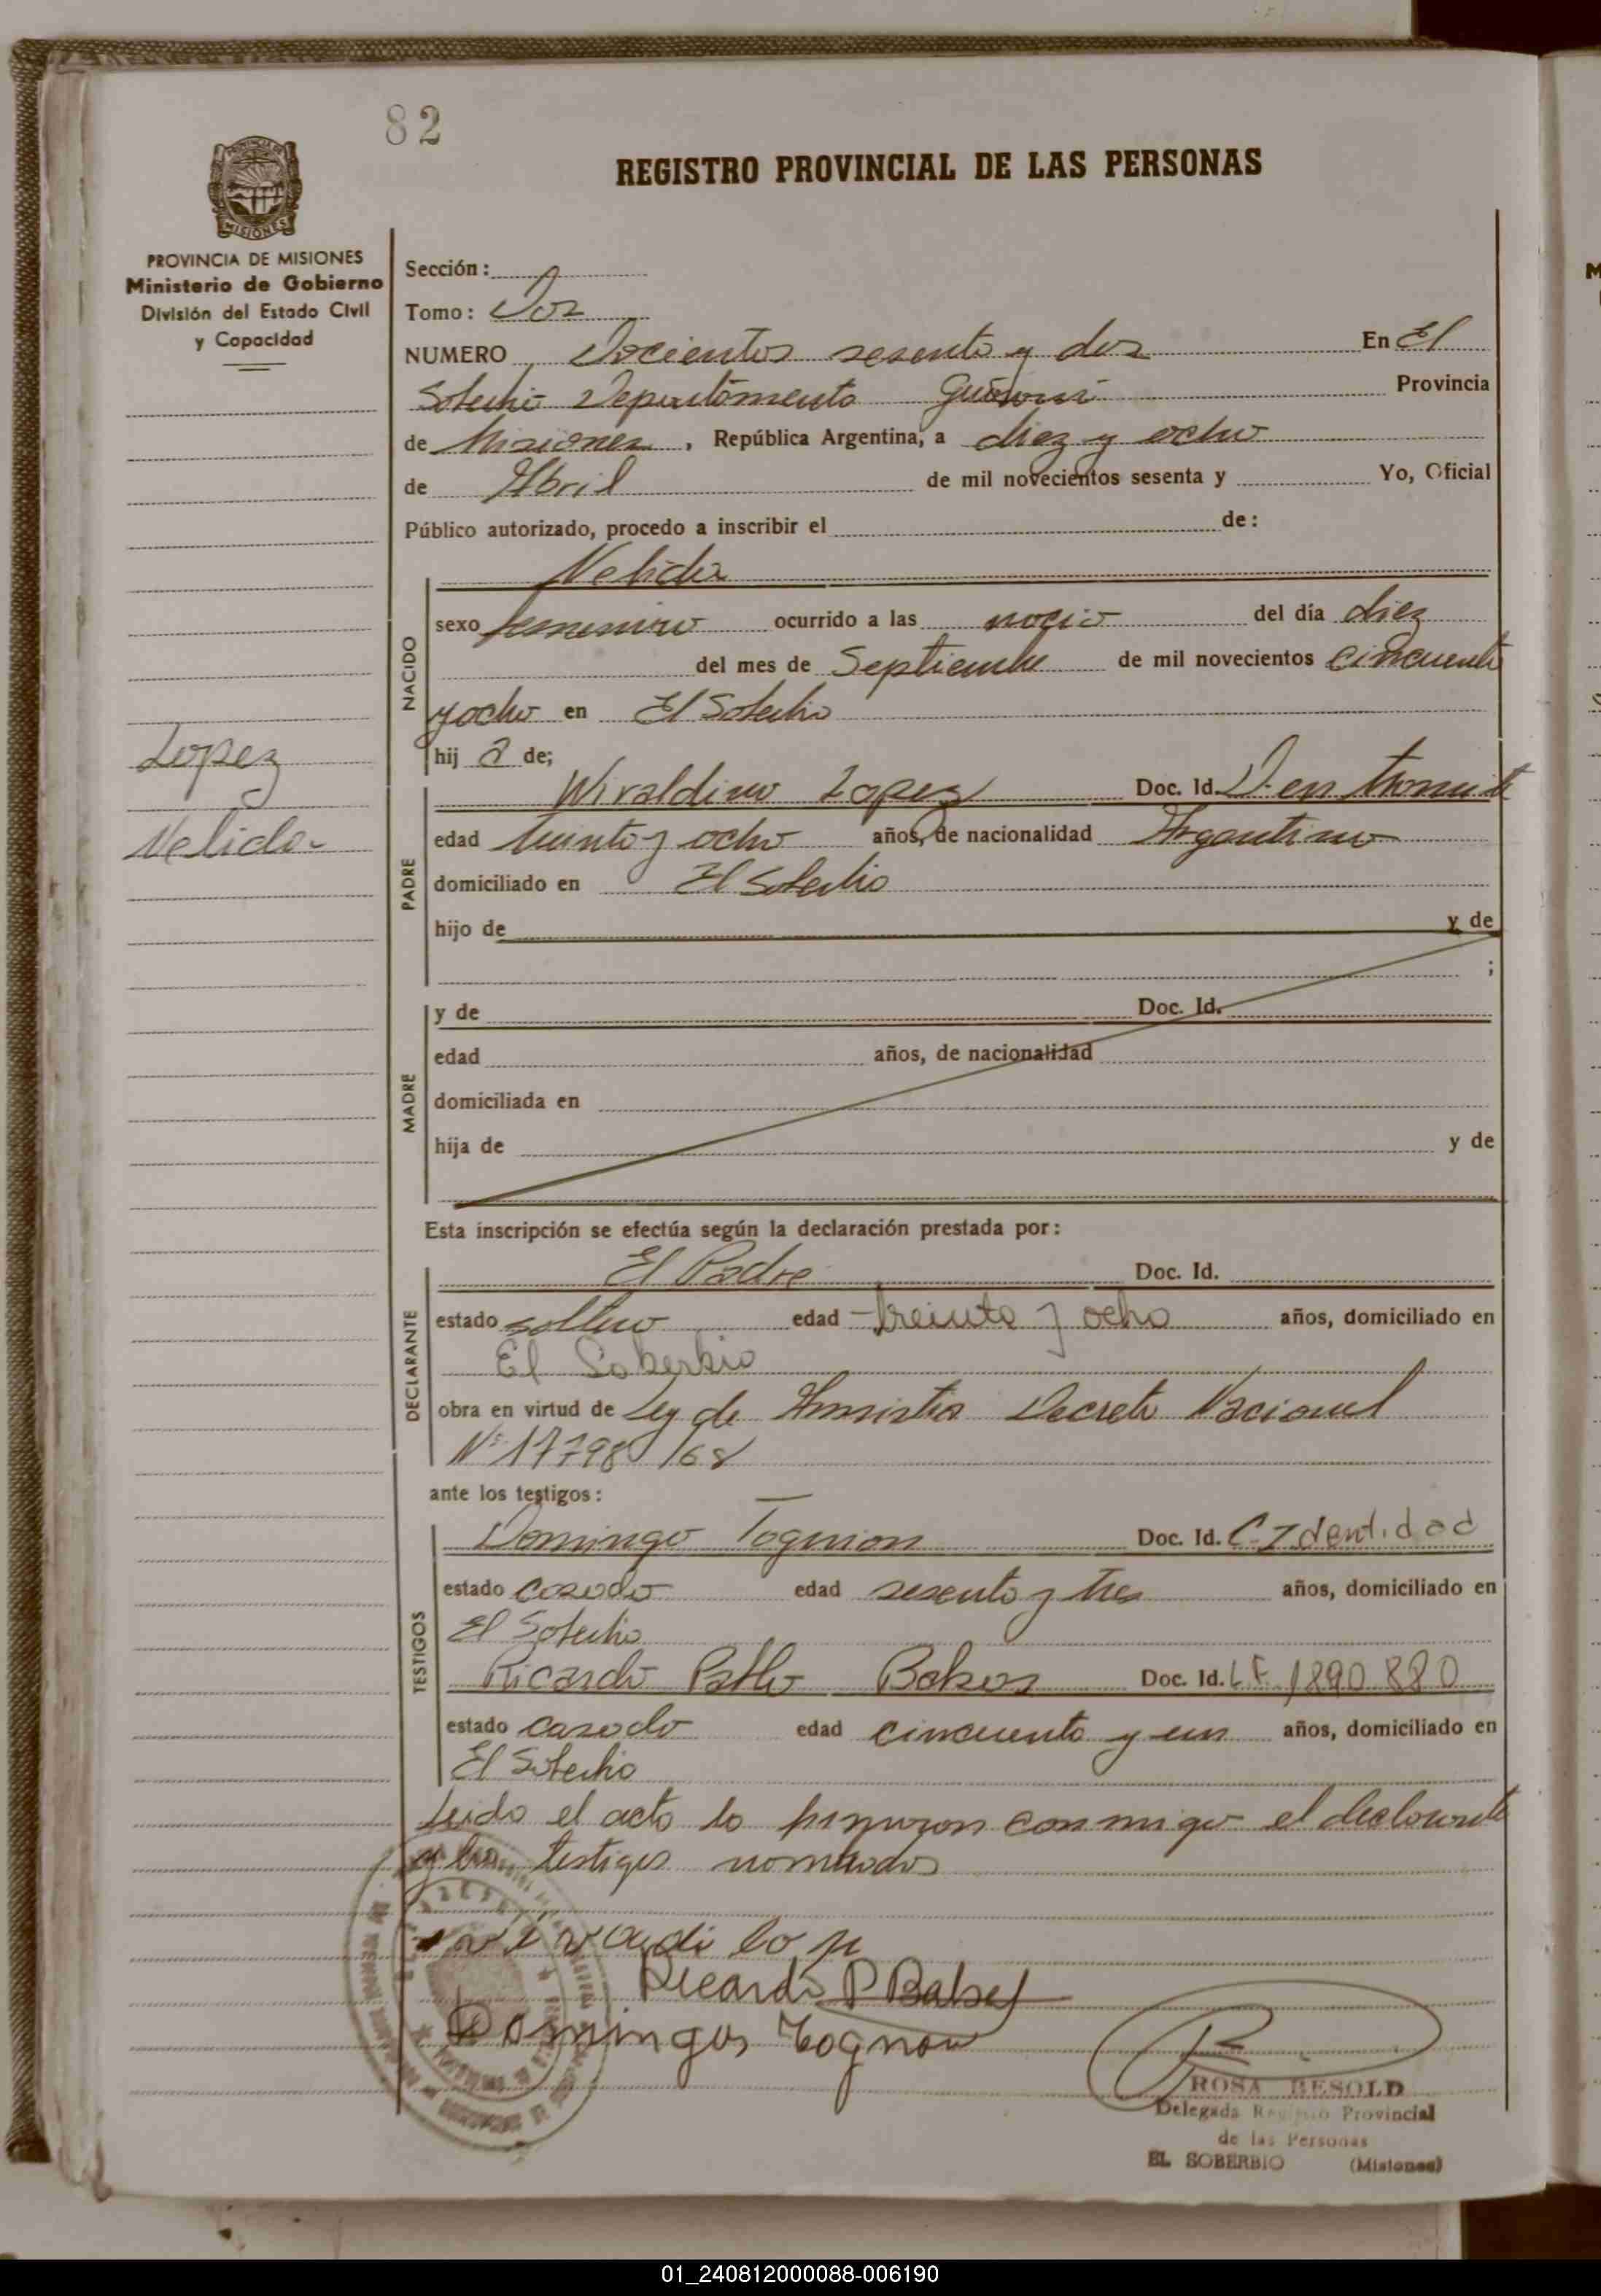 82
REGISTRO PROVINCIAL DE LAS PERSONAS
MISIONES
PROVINCIA DE MISIONES
Ministerio de Gobierno
División del Estado Civil
y Capacidad
Lopez
Nelida
Sección:
Tomo: Dos
NUMERO Docientos sesenta y dos En El
Soberbio Departamento Guaraní Provincia
de Misiones, República Argentina, a diez y ocho
de Abril de mil novecientos sesenta y Yo, Oficial
Público autorizado, procedo a inscribir el de:
NACIDO
Nelida
sexo femenino ocurrido a las del día diez
del mes de Septiembre de mil novecientos cincuenta
y ocho en El Soberbio
hij a de;
PADRE
Wiraldino Lopez Doc. Id. D. en tramite
edad treinta y ocho años, de nacionalidad Argentino
domiciliado en El Soberbio
hijo de y de
;
MADRE
y de Doc. Id.
edad años, de nacionalidad
domiciliada en
hija de y de
Esta inscripción se efectúa según la declaración prestada por:
DECLARANTE
El Padre Doc. Id.
estado soltero edad treinta y ocho años, domiciliado en
El Soberbio
obra en virtud de Ley de Amnistia Decreto Nacional
Nº 17798/68
ante los testigos:
TESTIGOS
Domingo Tognon Doc. Id. C. Identidad
estado casado edad sesenta y tres años, domiciliado en
El Soberbio
Ricardo Pablo Doc. Id. L.E. 1890.880
estado casado edad cincuenta y un años, domiciliado en
El Soberbio
Leido el acta la firmaron conmigo el declarante
y los testigos nombrados
Ricardo P
Domingos Tognon
ROSA BESOLD
Delegada Registro Provincial
de las Personas
EL SOBERBIO (Misiones)
01_240812000088-006190